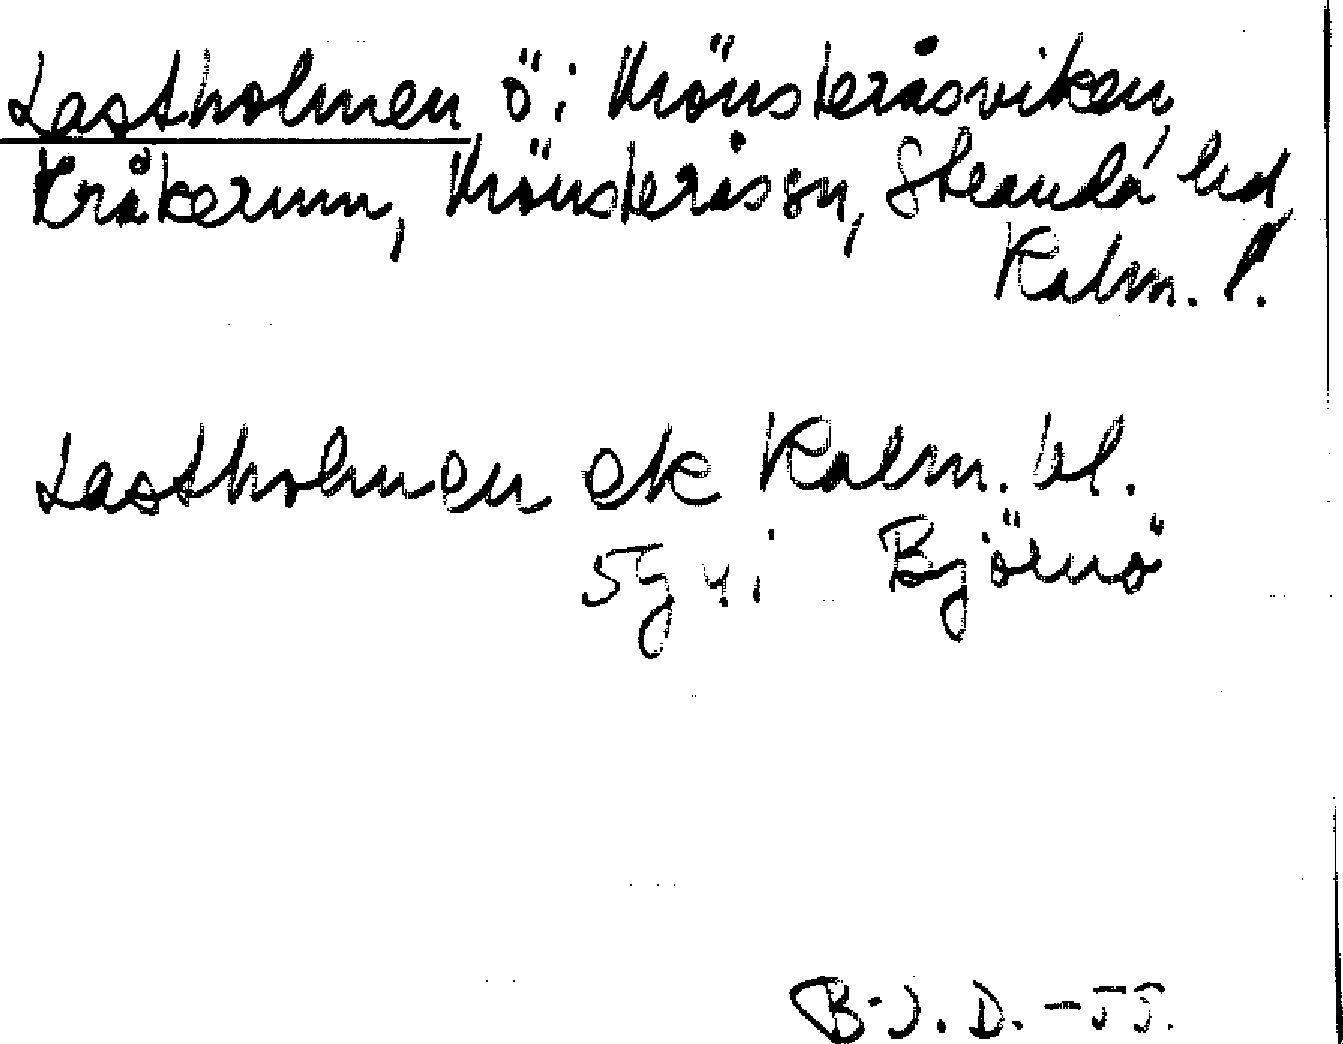 Lastholmen ö i Mönsteråsviken,
Kråkerum, Mönsterås sn, Stranda hd,
Kalm. l.
Lastholmen ek Kalm. bl.
5g y. i Björnö
B-J. D. -55.